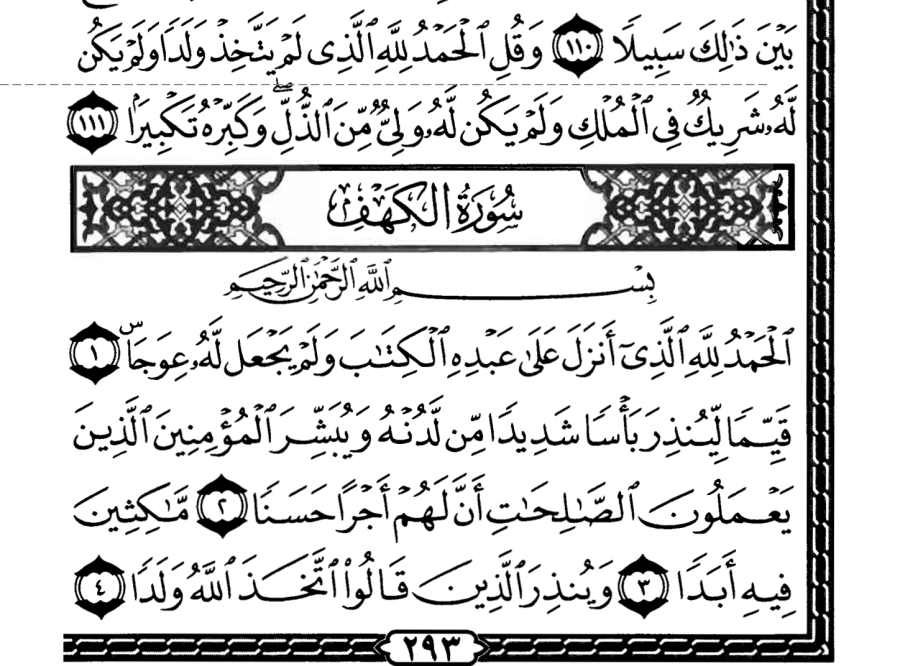 بَيْنَ ذَٰلِكَ سَبِيلًا ١١٠ وَقُلِ ٱلْحَمْدُ لِلَّهِ ٱلَّذِى لَمْ يَتَّخِذْ وَلَدًا وَلَمْ يَكُن
لَّهُۥ شَرِيكٌ فِى ٱلْمُلْكِ وَلَمْ يَكُن لَّهُۥ وَلِىٌّ مِّنَ ٱلذُّلِّ ۖ وَكَبِّرْهُ تَكْبِيرًۢا ١١١
سُورَةُ الكَهۡفِ
بِسْمِ ٱللَّهِ ٱلرَّحْمَٰنِ ٱلرَّحِيمِ
ٱلْحَمْدُ لِلَّهِ ٱلَّذِىٓ أَنزَلَ عَلَىٰ عَبْدِهِ ٱلْكِتَٰبَ وَلَمْ يَجْعَل لَّهُۥ عِوَجَاۜ ١
قَيِّمًا لِّيُنذِرَ بَأْسًا شَدِيدًا مِّن لَّدُنْهُ وَيُبَشِّرَ ٱلْمُؤْمِنِينَ ٱلَّذِينَ
يَعْمَلُونَ ٱلصَّٰلِحَٰتِ أَنَّ لَهُمْ أَجْرًا حَسَنًا ٢ مَّٰكِثِينَ
فِيهِ أَبَدًا ٣ وَيُنذِرَ ٱلَّذِينَ قَالُوا۟ ٱتَّخَذَ ٱللَّهُ وَلَدًا ٤
٢٩٣